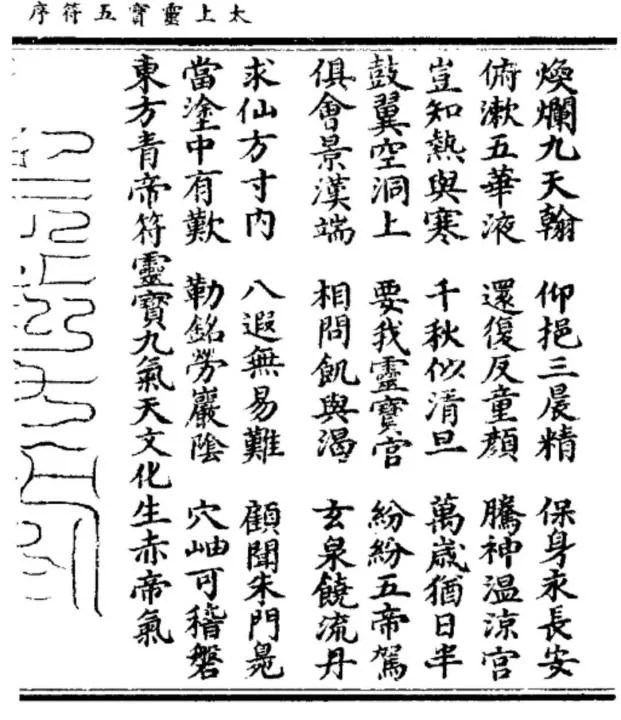 太上靈寶五符序
煥爛九天翰 仰挹三晨精 保身永長安
俯漱五華液 還復反童顏 騰神溫涼宮
豈知熱與寒 千秋似清旦 萬歲猶日半
鼓翼空洞上 要我靈寶宮 紛紛五帝駕
俱會景漢端 相問飢與渴 玄泉饒流丹
求仙方寸內 八遐無易難 顧聞朱門晃
當塗中有歎 勒銘勞巖陰 穴岫可稽磐
東方青帝符靈寶九氣天文化生赤帝氣